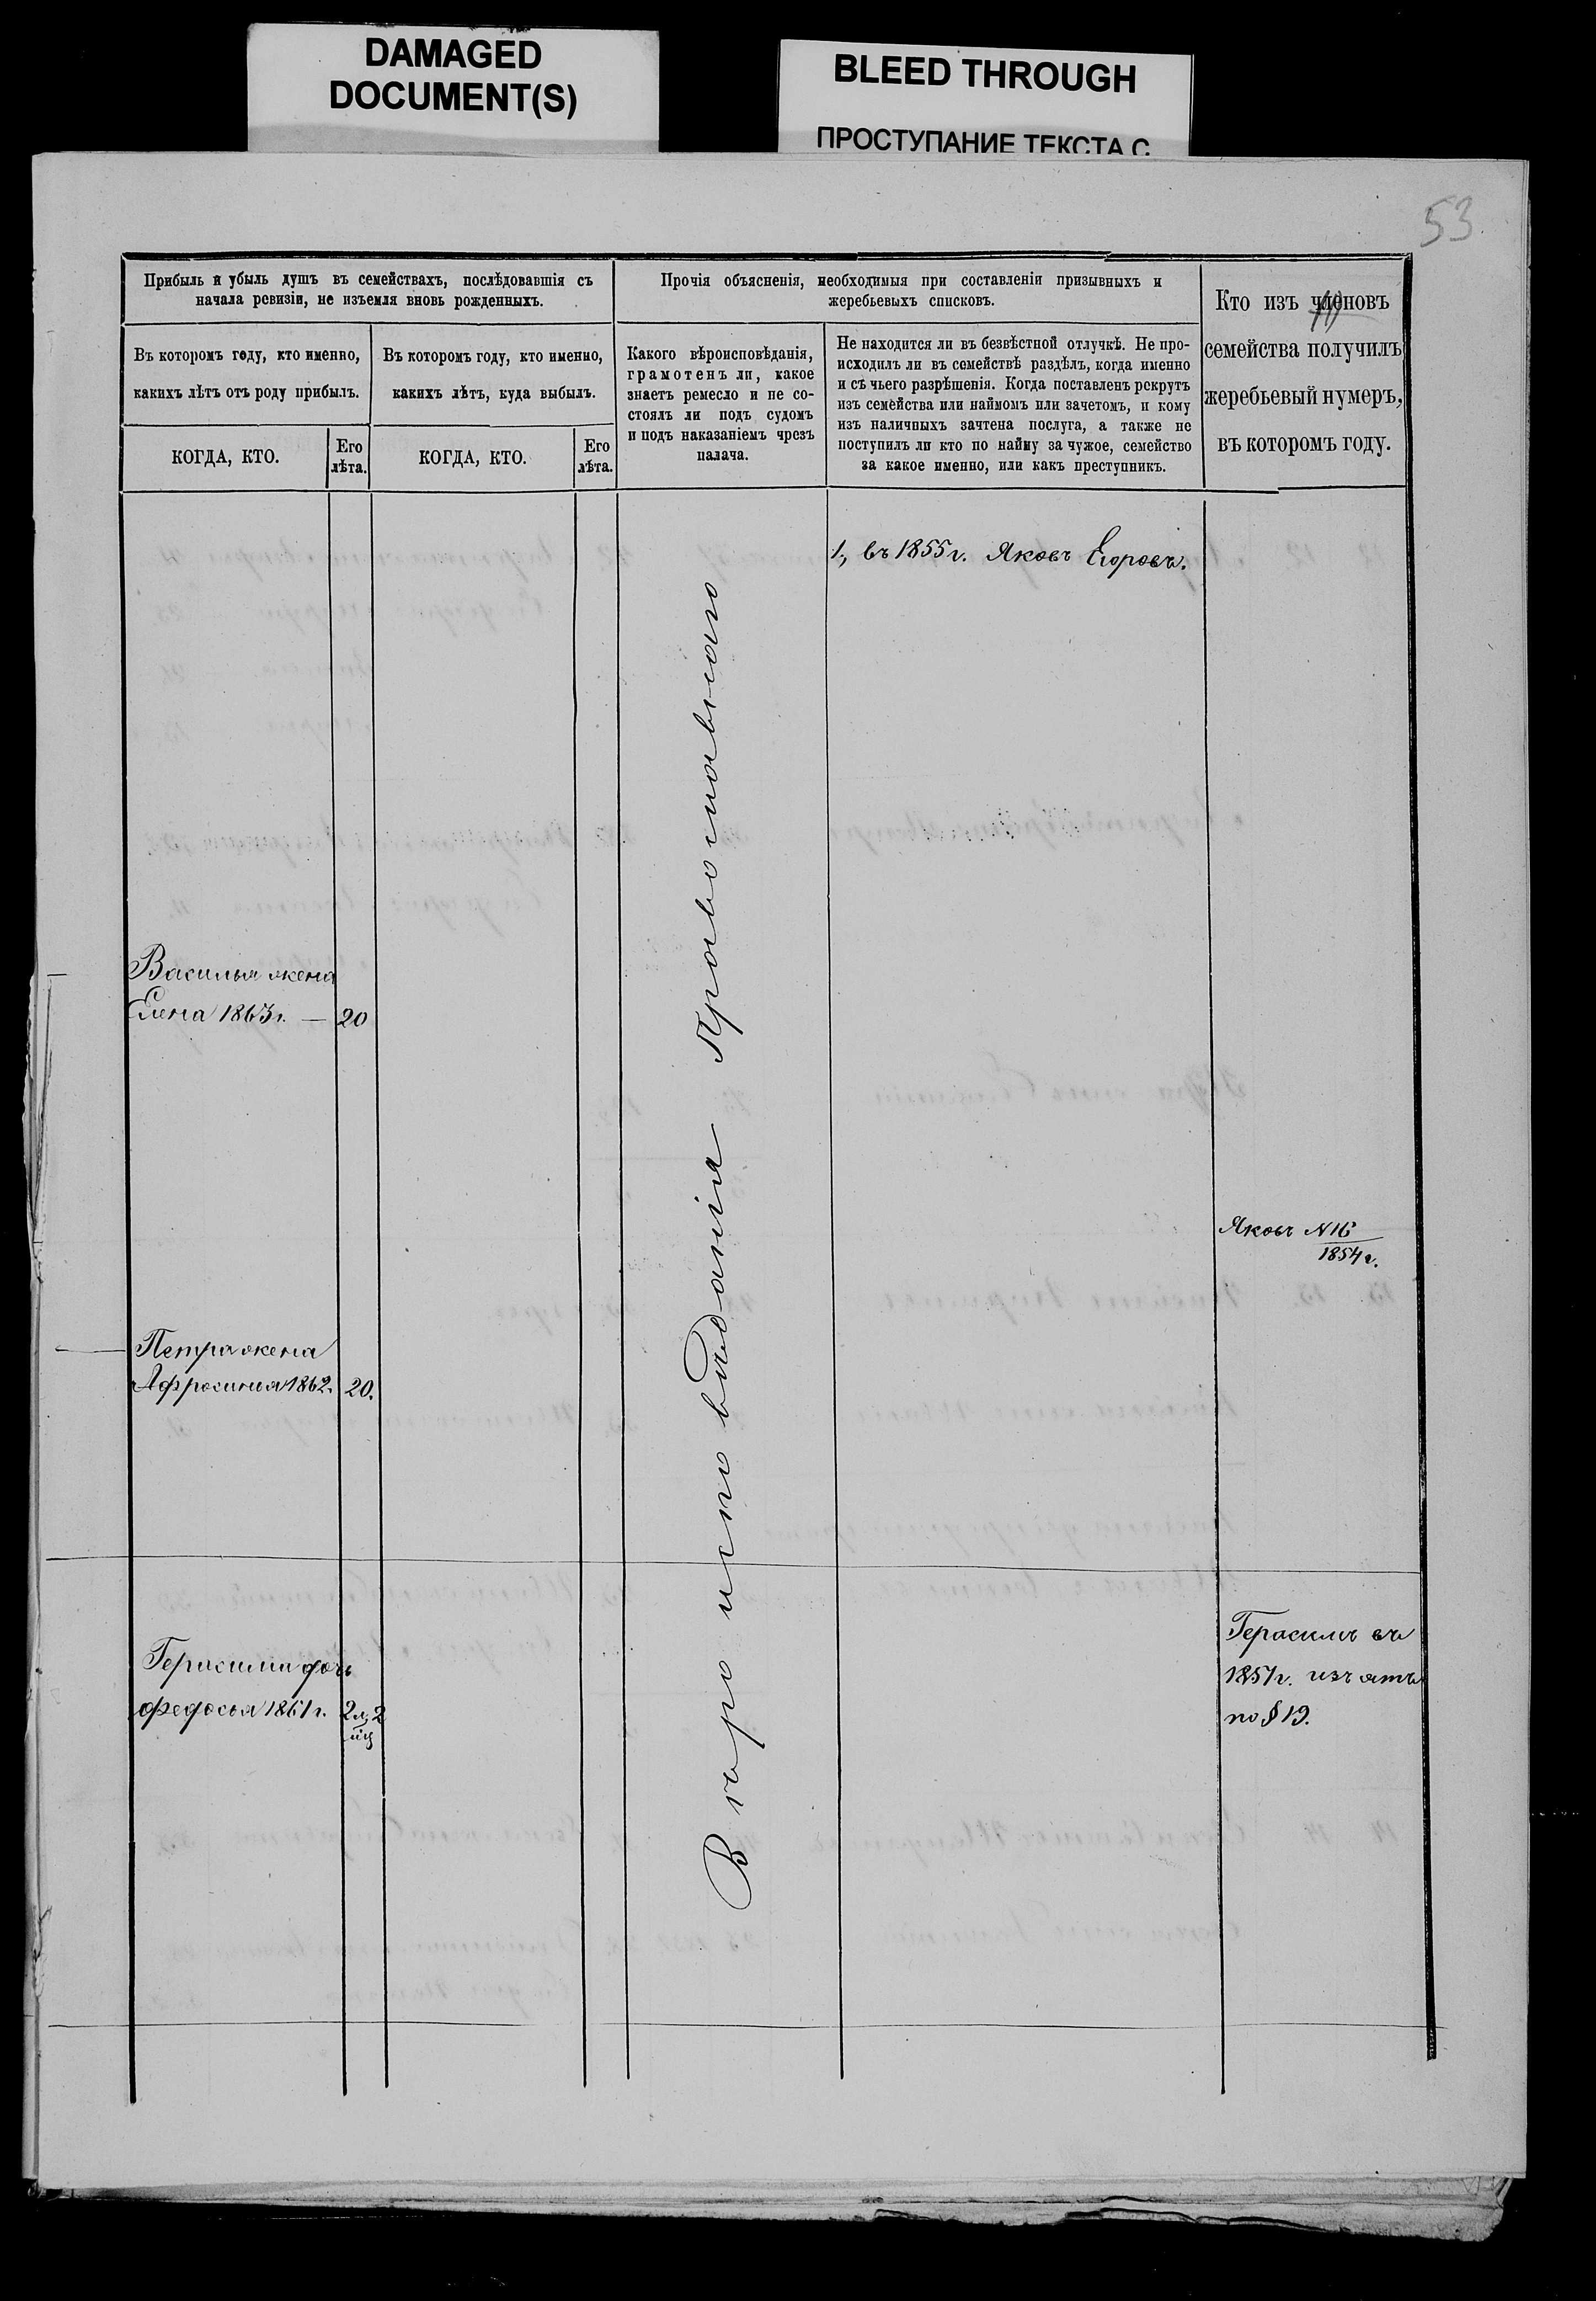 DAMAGED
DOCUMENT(S)
BLEED THROUGH
ПРОСТУПАНИЕ ТЕКСТА С
53.
Прибыль и убыль душъ въ семействахъ, послѣдовавшія съ
начала ревизіи, не изъемля вновь рожденныхъ.
Прочія объясненія, необходимыя при составленіи призывныхъ и
жеребьевыхъ списковъ.
Кто изъ членовъ
семейства получилъ
жеребьевый нумеръ,
въ которомъ году.
Въ которомъ году, кто именно,
какихъ лѣтъ отъ роду прибылъ.
Въ которомъ году, кто именно,
какихъ лѣтъ, куда выбылъ.
Какого вѣроисповѣданія,
грамотенъ ли, какое
знаетъ ремесло и не со-
стоялъ ли подъ судомъ
и подъ наказаніемъ чрезъ
палача.
Не находится ли въ безвѣстной отлучкѣ. Не про-
исходилъ ли въ семействѣ раздѣлъ, когда именно
и съ чьего разрѣшенія. Когда поставленъ рекрутъ
изъ семейства или наймомъ или зачетомъ, и кому
изъ наличныхъ зачтена послуга, а также не
поступилъ ли кто по найму за чужое, семейство
за какое именно, или какъ преступникъ.
КОГДА, КТО.
Его
лѣта.
КОГДА, КТО.
Его
лѣта.
1, въ 1855 г. Яковъ Егоровъ.
Василья жена
Елена 1863 г. — 20
Яковъ N 16
1854 г.
Петра жена
Афросинья 1862. 20.
Вѣро исповѣданія Православнаго
Герасима дочь
Федосья 1861 г. 2
Герасимъ въ
1857 г. изъятъ
по § 19.